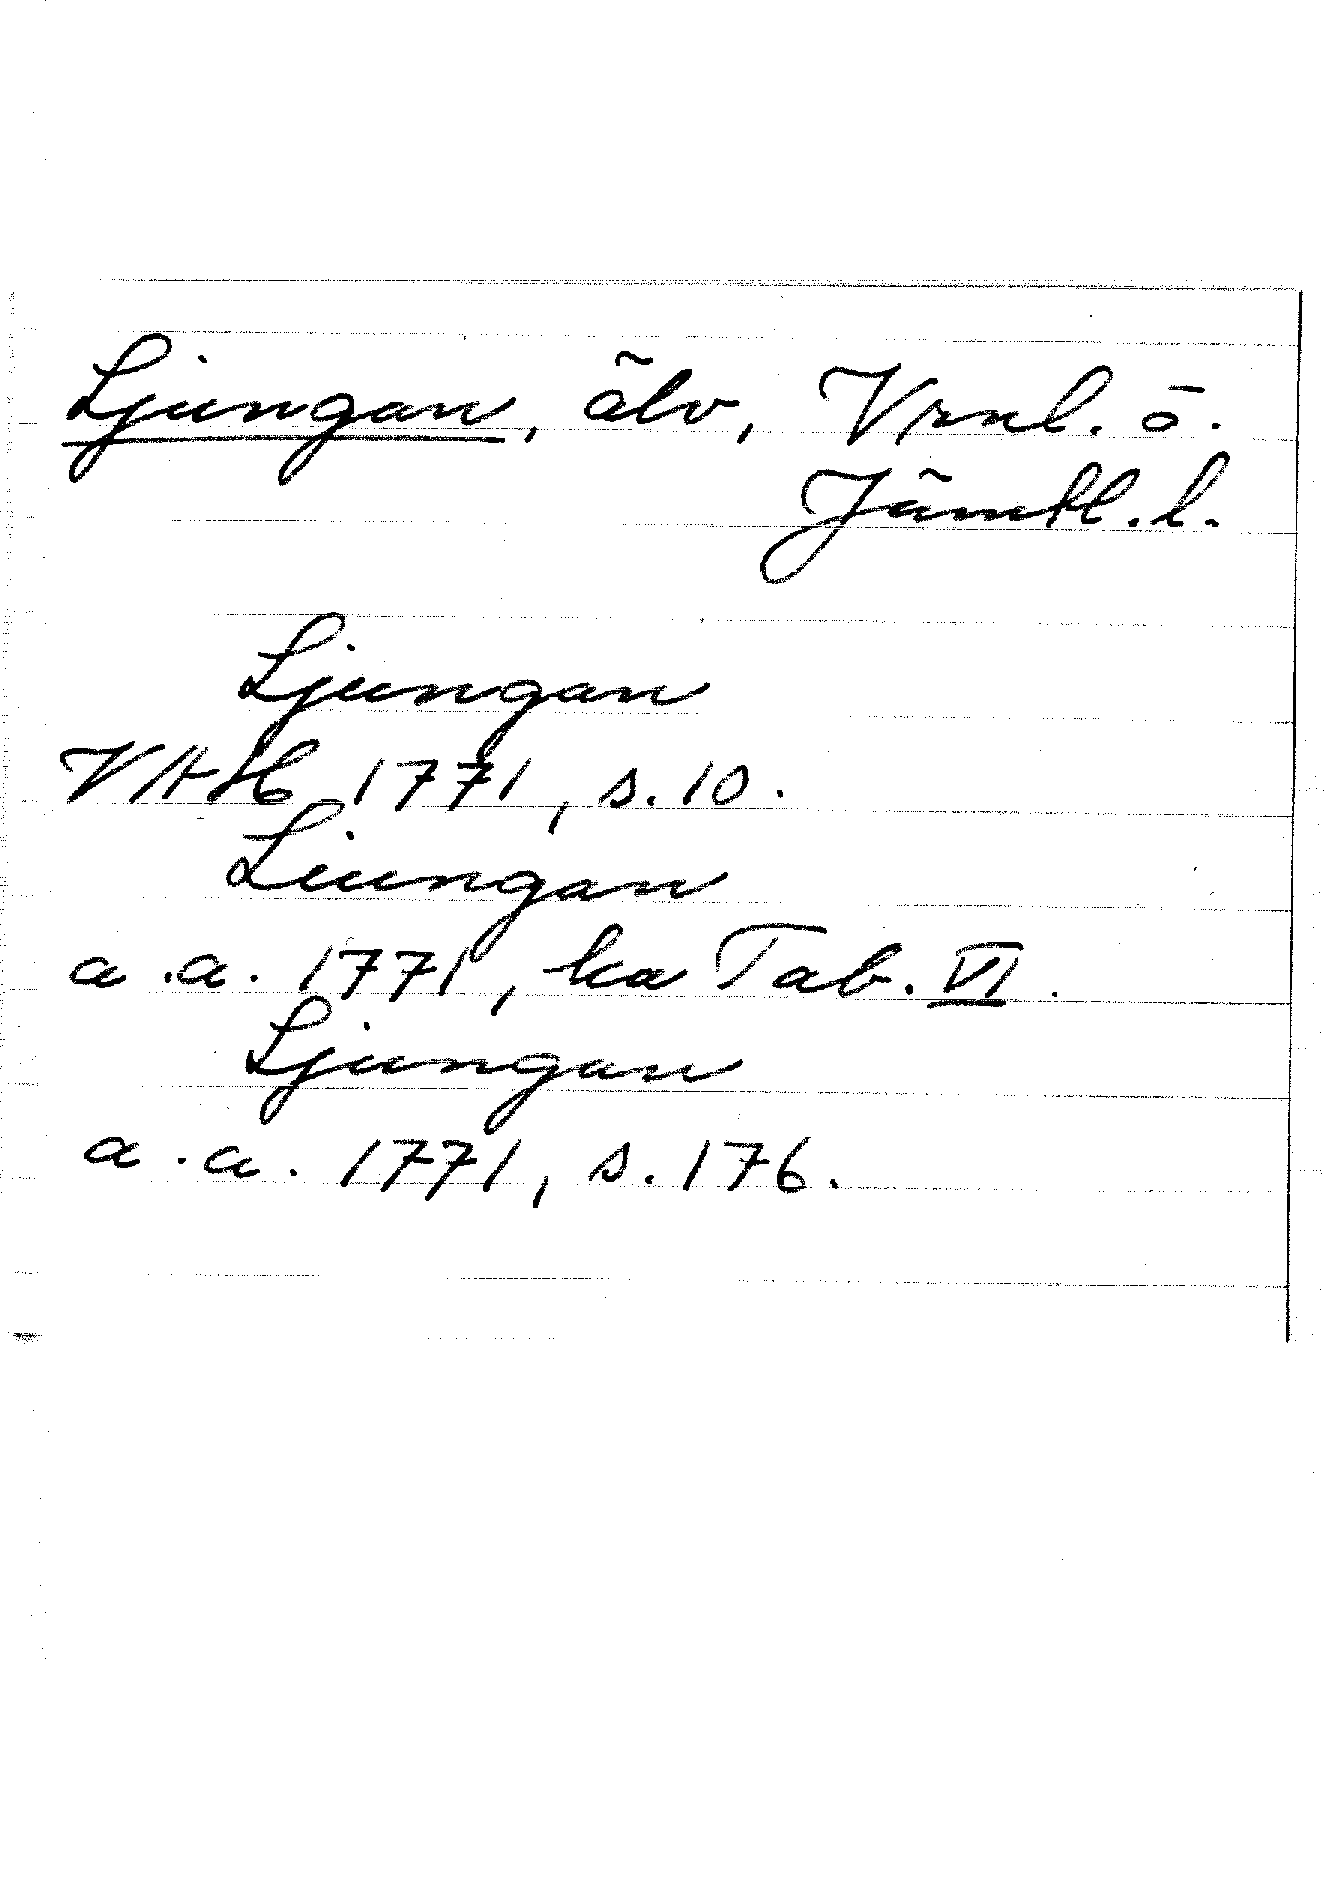 Ljungan, älv, Vrnl. o.
Jämtl. l.
Ljungan
VAH 1771, s. 10.
Liungan
a.a. 1771, ka Tab. VI.
Ljungan
a.a. 1771, s. 176.